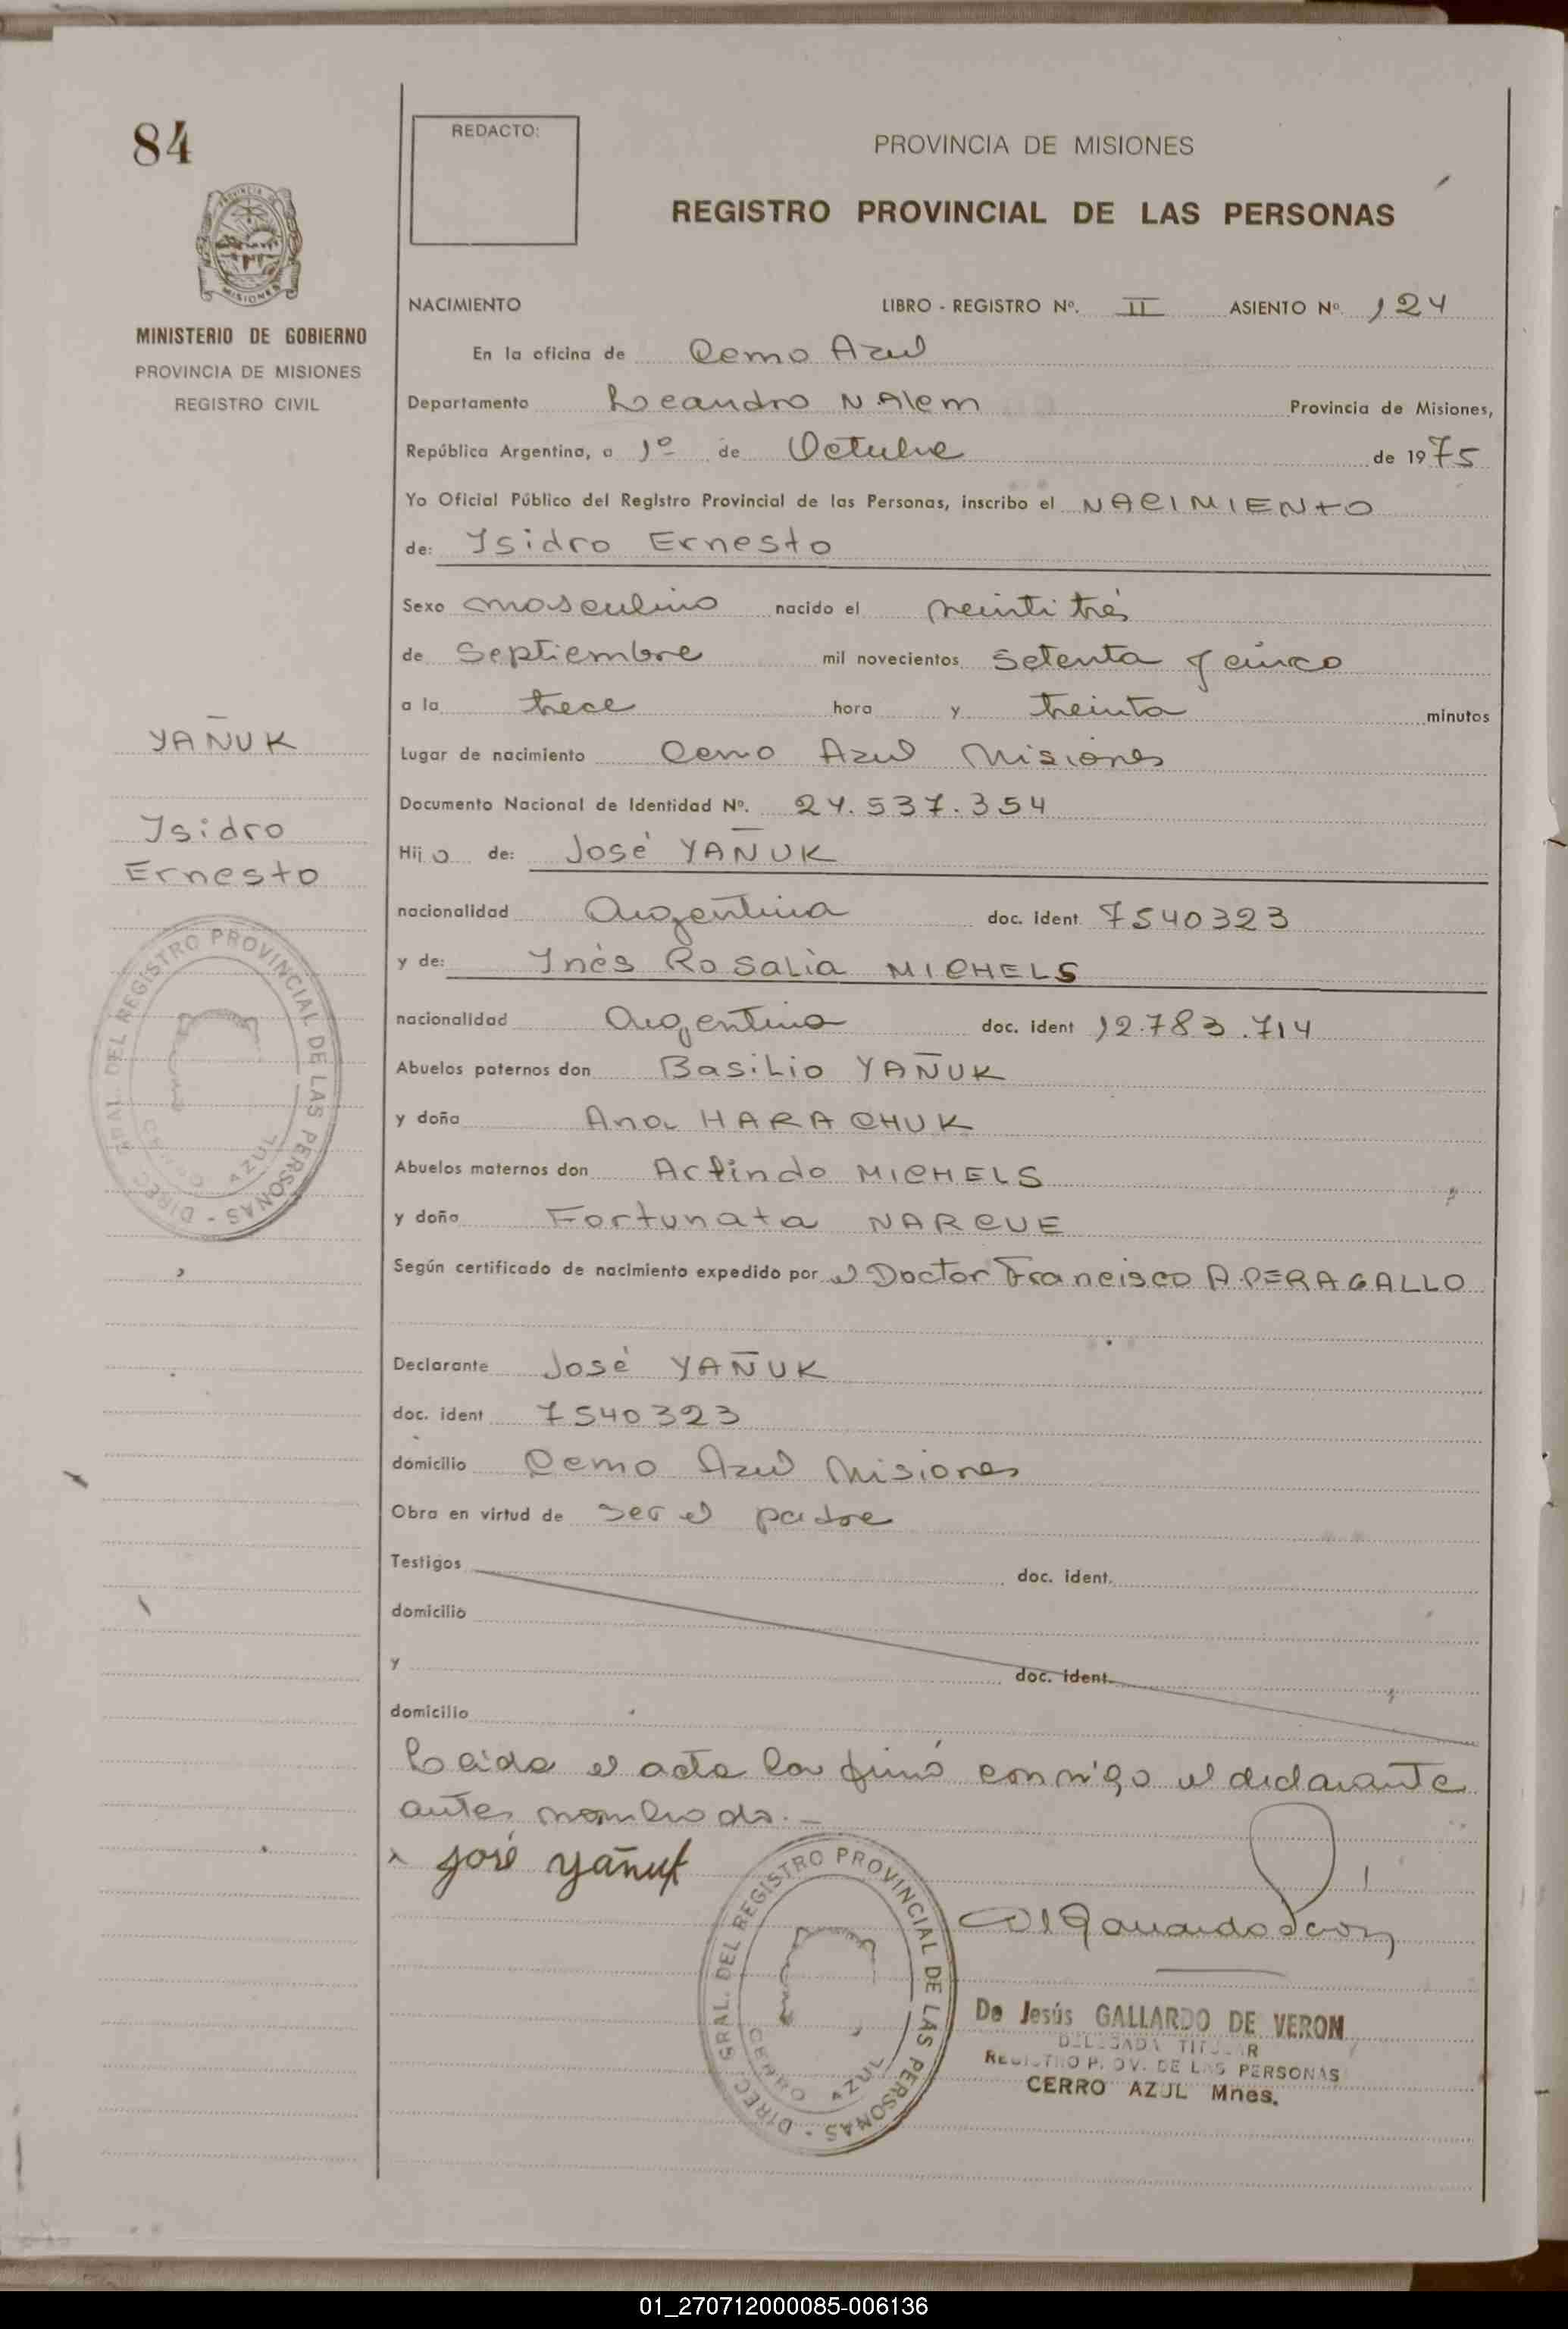 84
REDACTO:
PROVINCIA DE MISIONES
REGISTRO PROVINCIAL DE LAS PERSONAS
PROVINCIA DE
MISIONES
MINISTERIO DE GOBIERNO
PROVINCIA DE MISIONES
REGISTRO CIVIL
NACIMIENTO LIBRO - REGISTRO Nº. II ASIENTO Nº 124
En la oficina de Cerro Azul
Departamento Leandro N Alem Provincia de Misiones,
República Argentina, a 1º de Octubre de 1975
Yo Oficial Público del Registro Provincial de las Personas, inscribo el NACIMIENTO
de: Isidro Ernesto
Sexo masculino nacido el veintitrés
de Septiembre mil novecientos setenta y cinco
a la trece hora y treinta minutos
YAÑUK
Isidro
Ernesto
Lugar de nacimiento Cerro Azul Misiones
Documento Nacional de Identidad Nº. 24.537.354
Hijo de: José YAÑUK
nacionalidad Argentina doc. ident. 7540323
y de: Inés Rosalia MICHELS
nacionalidad Argentina doc. ident 12.783.714
Abuelos paternos don Basilio YAÑUK
y doña Ana HARACHUK
Abuelos maternos don Arlindo MICHELS
y doña Fortunata NARCUE
Según certificado de nacimiento expedido por el Doctor Francisco A. PERAGALLO
DIREC. GRAL. DEL REGISTRO PROVINCIAL DE LAS PERSONAS -
CERRO AZUL
Declarante José YAÑUK
doc. ident 7540323
domicilio Cerro Azul Misiones
Obra en virtud de ser el padre
Testigos doc. ident.
domicilio
y doc. ident.
domicilio
Leida el acta la firmó conmigo el declarante
antes nombrado.-
José Yañuk
DIREC. GRAL. DEL REGISTRO PROVINCIAL DE LAS PERSONAS -
CERRO AZUL
De Jesús GALLARDO DE VERON
DELEGADA TITULAR
REGISTRO PROV. DE LAS PERSONAS
CERRO AZUL Mnes.
01_270712000085-006136